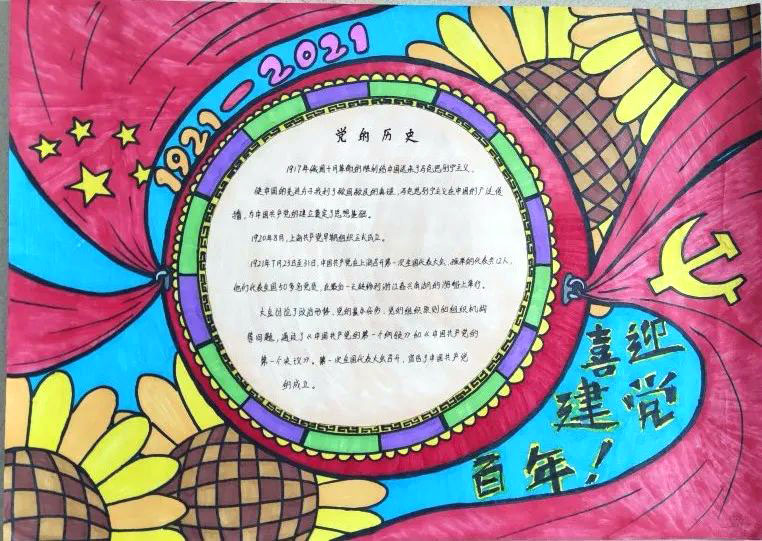 1921-2021
党的历史
1917年俄国十月革命的胜利给中国送来了马克思列宁主义,
使中国的先进分子找到了救国救民的真理,马克思列宁主义在中国的广泛传
播,为中国共产党的建立奠定了思想基础。
1920年8月,上海共产党早期组织正式成立。
1921年7月23日至31日,中国共产党在上海召开第一次全国代表大会,的代表共12人,
他们代表全国50多名党员,在最后一天转移到浙江嘉兴南湖的游船上举行。
大会讨论了政治形势、党的基本任务、党的组织原则和组织机构
等问题,通过了《中国共产党的第一个纲领》和《中国共产党的
第一个决议》。第一次全国代表大会召开,宣告了中国共产党
的成立。
喜迎
建党
百年!